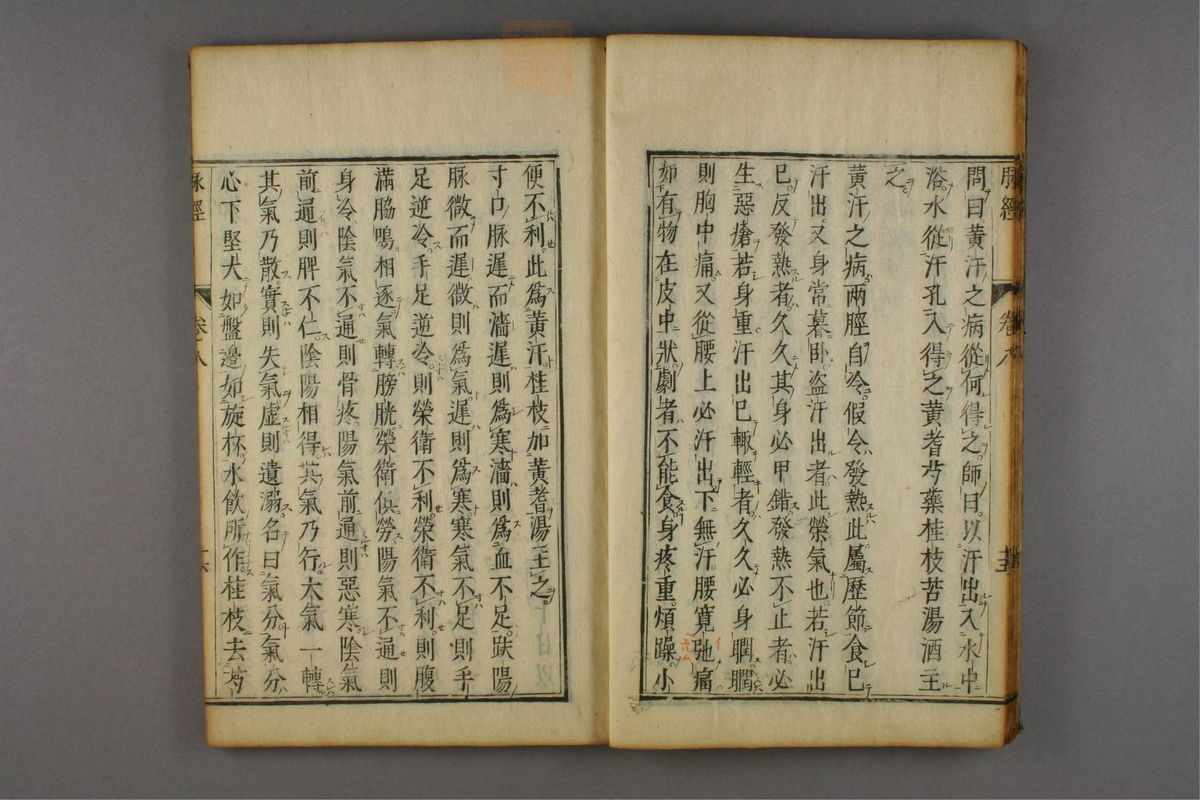 脉經 卷八
問曰黃汗之病從何得之師曰以汗出入水中
浴水從汗孔入得之黃耆芍藥桂枝苦湯酒主
之
黃汗之病兩脛自冷假令發熱此屬歷節食已
汗出又身常暮卧盜汗出者此榮氣也若汗出
已反發熱者久久其身必甲錯發熱不止者必
生惡瘡若身重汗出已輒輕者久久必身瞤瞤
則胸中痛又從腰上必汗出下無汗腰寛弛痛
如有物在皮中狀劇者不能食身疼重煩躁小
便不利此爲黃汗桂枝加黃耆湯主之
寸口脉遲而濇遲則爲寒濇則爲血不足趺陽
脉微而遲微則爲氣遲則爲寒寒氣不足則手
足逆冷手足逆冷則榮衛不利榮衛不利則腹
滿脇鳴相逐氣轉膀胱榮衛俱勞陽氣不通則
身冷陰氣不通則骨疼陽氣前通則惡寒陰氣
前通則脾不仁陰陽相得其氣乃行大氣一轉
其氣乃散實則失氣虛則遺溺名曰氣分氣分
心下堅大如盤邊如旋杯水飲所作桂枝去芍
脉經 卷八